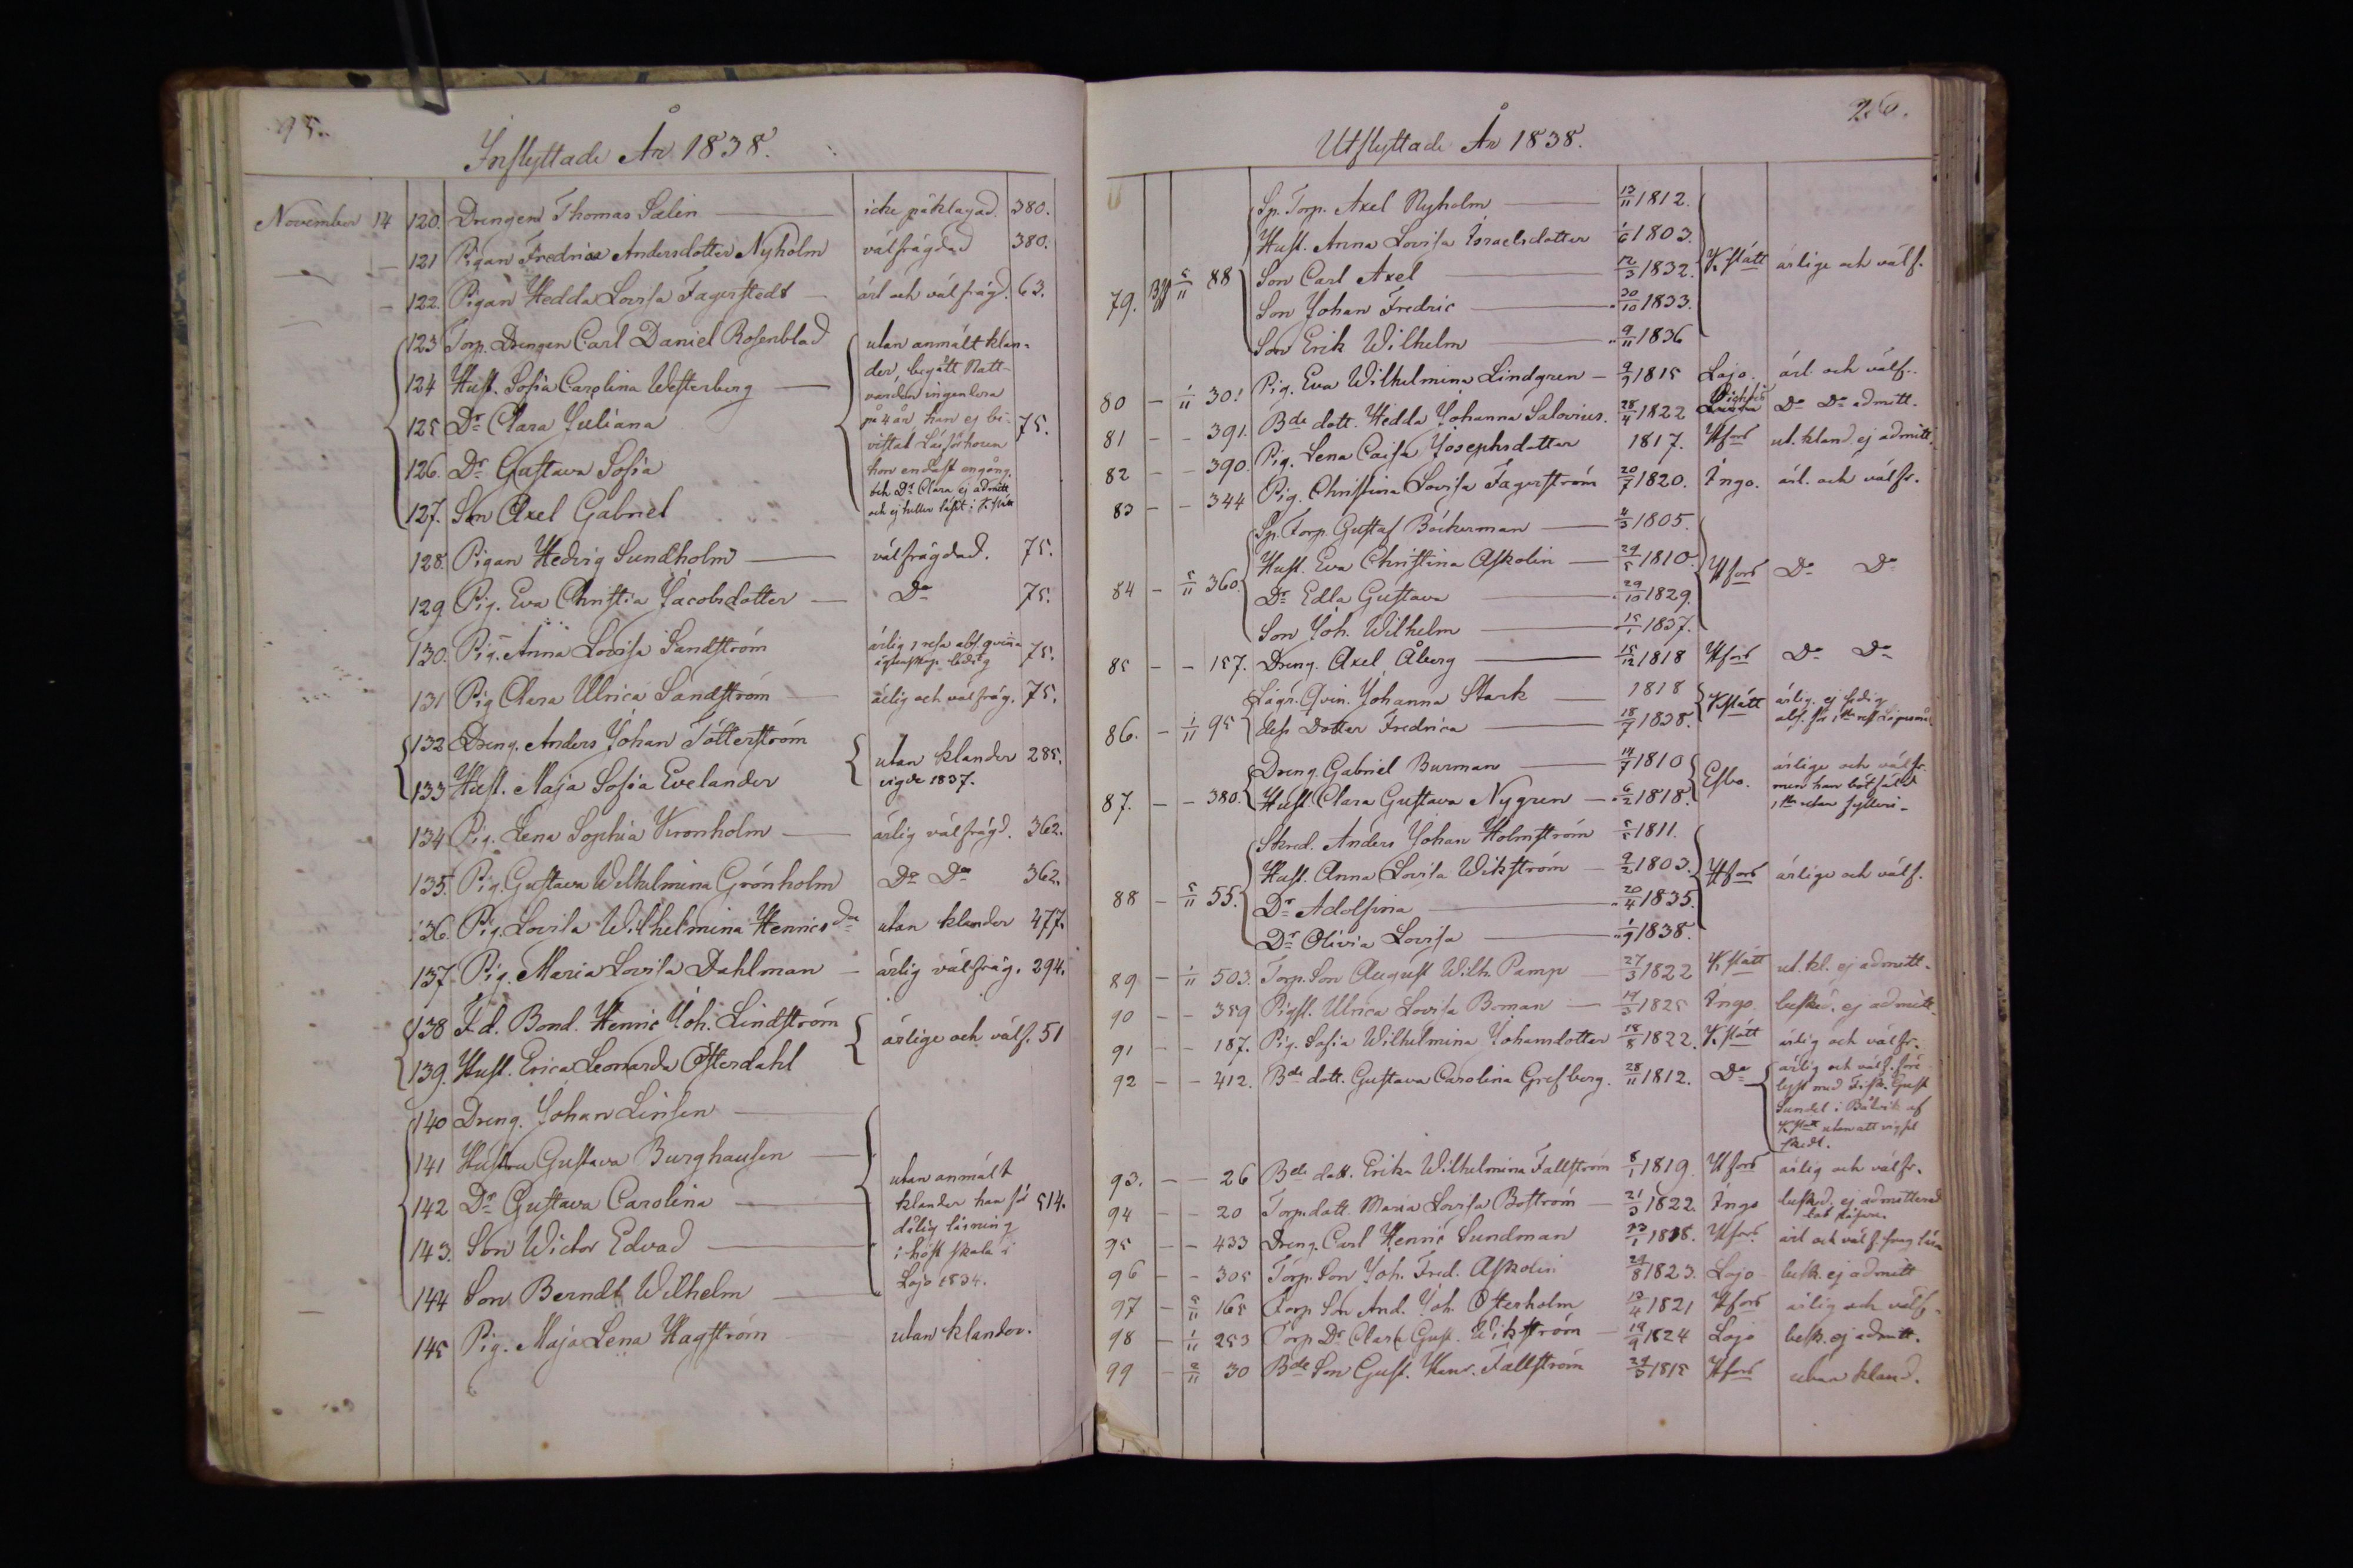 95.
Inflyttade År 1838.
November 14 120. Drengen Thomas Salin icke påklagad. 380.
121 Pigan Fredrica Andersdotter Nyholm välfrägdad 380.
122. Pigan Hedda Lovisa Fagerstedt ärl och välfrägd. 63.
123 Torp. Drengen Carl Daniel Rosenblad utan anmält klan-
124 Hust. Sofia Carolina Westerberg der, begått Natt-
varden ingendera
125 Dr Clara Juliana på 4 år, han ej be- 75.
vistat Läsförhören
126. Dr Gustava Sofia hon endast engång.
och Dr Clara ej admitt
127. Son Axel Gabriel och ej heller läst i K.slätt
128. Pigan Hedvig Sundholm välfrägdad. 75.
129 Pig. Eva Christia Jacobsdotter Do 75.
130. Pig. Anna Lovisa Sandström ärlig 1 resa abs. qvinna 75.
ägtenskaps ledig
131 Pig Clara Ulrica Sandström ärlig och välfräg. 75.
132 Dreng. Anders Johan Tötterström utan klander 285.
133 Hust. Maja Sofia Evelander vigde 1837.
134 Pig. Lena Sophia Kronholm ärlig välfrägd. 362.
135. Pig. Gustava Wilhelmina Grönholm Do Do 362.
136. Pig. Lovisa Wilhelmina Henricsdr utan klander 477.
137. Pig. Maria Lovisa Dahlman ärlig välfräg. 294.
138 F.d. Bond. Henric Joh. Lindström ärlige och välf. 51
139. Hust. Erica Leonarda Österdahl
140 Dreng. Johan Linsen
141 Hustru Gustava Burghausen utan anmält
142 Dr Gustava Carolina klander han för 514.
dålig läsning
143. Son Wictor Edvad i höst skola i
144 Son Berndt Wilhelm Lojo 1834.
145 Pig. Maja Lena Hagström utan klander.
Utflyttade År 1838.
Sp. Torp. Axel Nyholm 13/11 1812.
Hust. Anna Lovisa Israelsdotter 1/6 1803.
79. 5/11 88 Son Carl Axel 12/3 1832. K.slätt ärlige och välf.
Son Johan Fredric 30/10 1833.
Son Erik Wilhelm 9/11 1836
80 - 1/11 30! Pig. Eva Wilhelmina Lindgren 9/9 1815 Lojo. ärl och välf.
81 - - 391. Bde dott. Hedda Johanna Salovius. 28/4 1822 Do Do admitt.
82 - - 390. Pig. Lena Caisa Josephsdotter 1817. Hfors ut. kland. ej admitt.
83 - - 344 Pig. Christina Lovisa Fagerström 20/7 1820. Ingo. ärl. och välfr.
Sp. Torp. Gustaf Böckerman 4/3 1805.
Hust. Eva Christina Askolin 24/5 1810.
84 - 5/11 360. Dr Edla Gustava 29/10 1829. Hfors Do Do
Son Joh. Wilhelm 15/1 1837.
85 - - 157. Dreng. Axel Åberg 15/12 1818 Hfors Do Do
Lägr. Qvin. Johanna Stark 1818 K.slätt ärlig. ej ledig
86. - 1/11 95 dess Dotter Fredrica 18/7 1838. abs. för 1sta res. Lägersmål
Dreng. Gabriel Burman 14/7 1810 Esbo. ärlige och välfr.
87. - - 380. Hust. Clara Gustava Nygren 6/2 1818. men han bötfälld
1sta resan fylleri
Skred. Anders Johan Holmström 5/5 1811.
Hust. Anna Lovisa Wikström 9/2 1803. Hfors ärlige och välf.
88 - 5/11 55. Dr Adolfina 20/4 1835.
Dr Olivia Lovisa 1/9 1838.
89 - 1/11 503. Torp. Son August Wilh. Pamp 27/3 1822 K.slätt ut. kl. ej admitt.
90 - - 359 Pigst. Ulrica Lovisa Boman 19/3 1825 Ingo besked. ej admitt.
91 - - 187. Pig. Sofia Wilhelmina Johansdotter 18/8 1822. K.slätt ärlig och välfr.
92 - - 412. Bde dott. Gustava Carolina Grefberg. 28/11 1812. Do ärlig och välf.
lyst med Gust
Sundel i Båtvik af
K.slätt utan att vigsel
skedt.
93. - - 26 Bde dott. Erika Wilhelmina Fallström 8/1 1819. Hfors ärlig och välfr.
94 - - 20 Torp. dott. Maria Lovisa Boström 21/3 1822. Ingo besked. ej admitterad
95 - - 433 Dreng. Carl Henric Sundman 23/1 1818. Hfors ärl och välf.
96 - - 305 Torp. Son Joh. Fred. Askolin 24/8 1823. Lojo besk. ej admitt
97 - 5/11 165 Torp Son And. Joh. Österholm 13/4 1821 Hfors ärlig och välf.
98 - 1/11 253 Torp Dr Clara Gust. Wikström 19/9 1824 Lojo besk. ej admitt.
99 - 2/11 30 Bde Son Gust. Henr. Fallström 24/3 1815 Hfors utan kland.